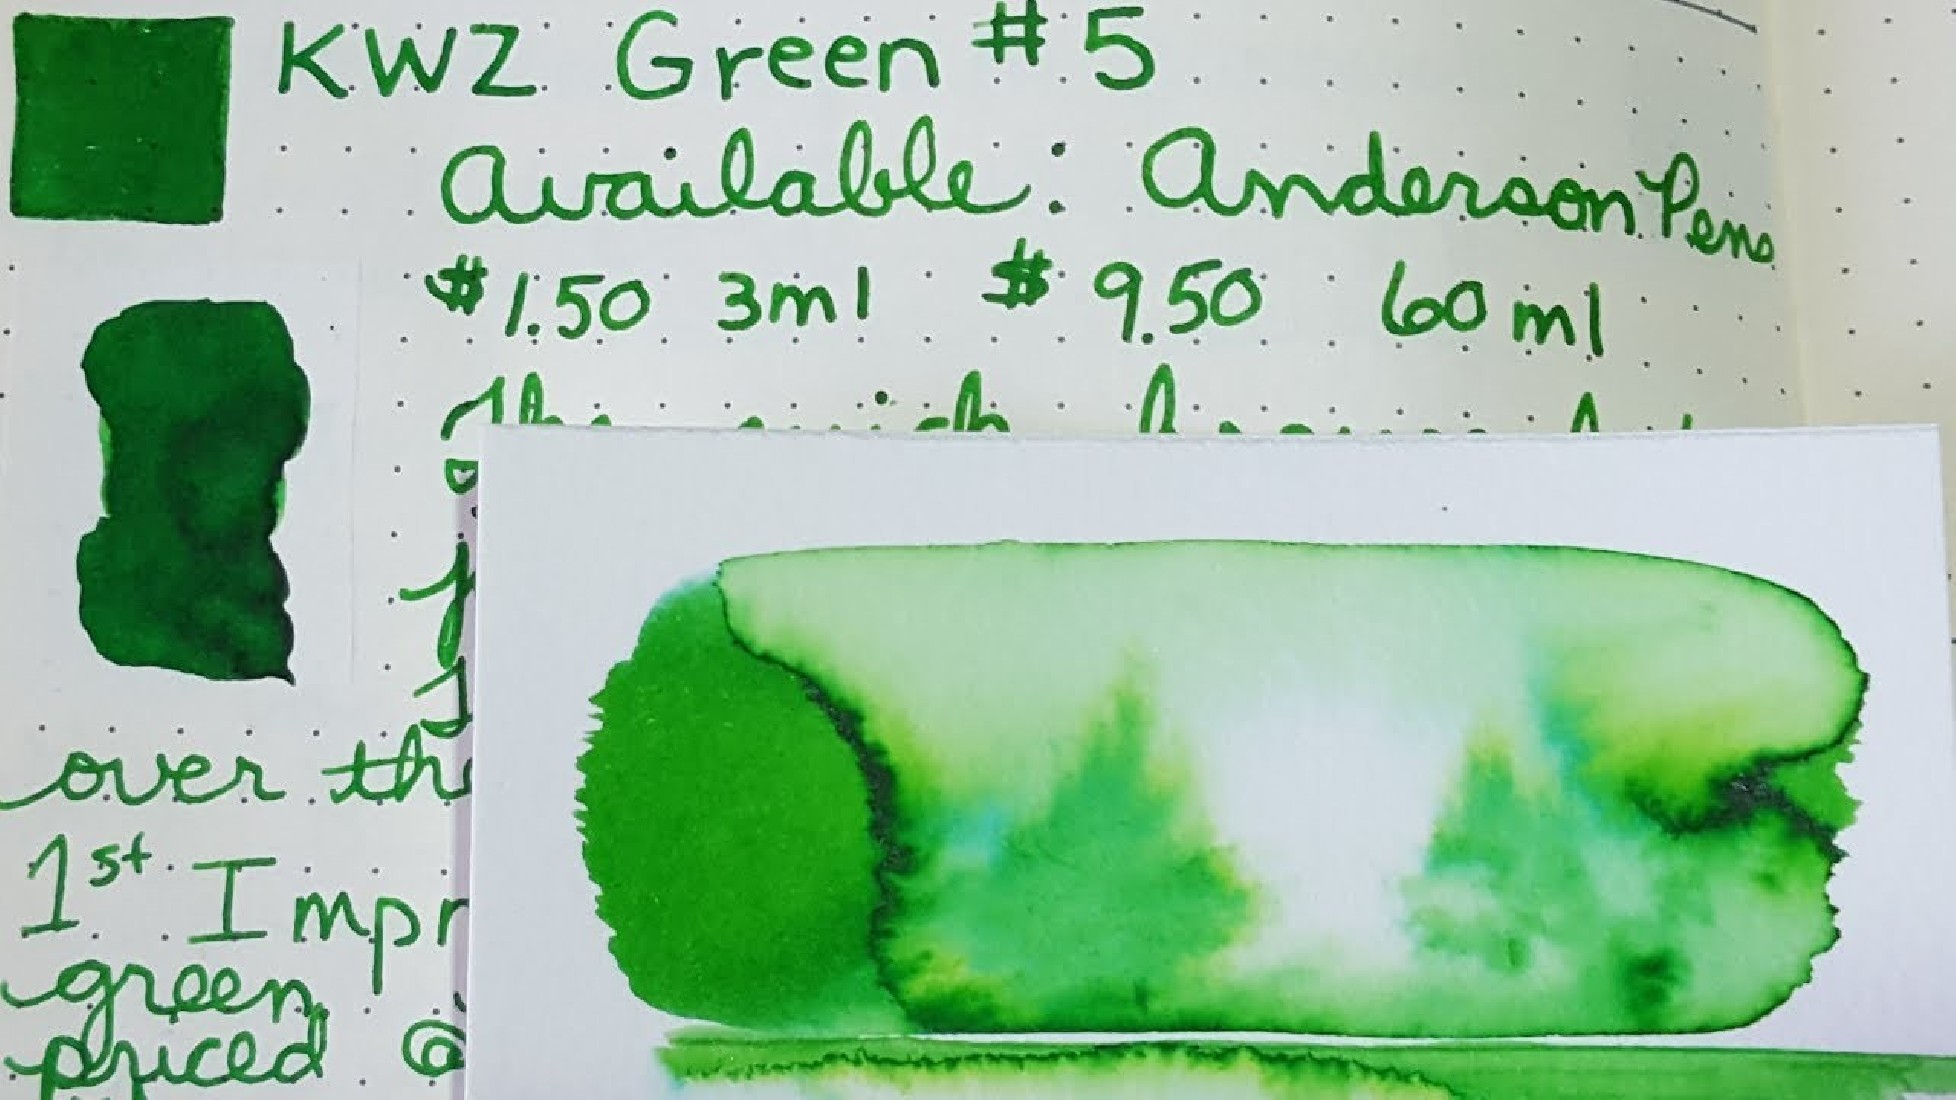 KWZ Green #5
Available: Anderson Pens
$1.50 3ml $9.50 60ml
The quick brown
over the
1st Impr
green
priced @